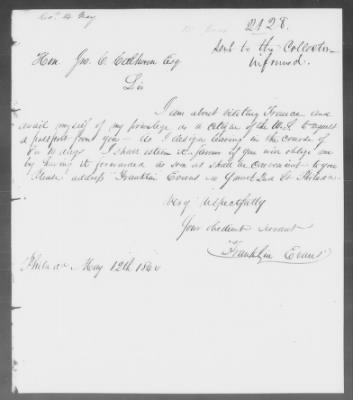 2128.
Sent to the Collector
informed.
Hon. Jno. C. Calhoun Esq
Sir
I am about visiting France and
avail myself of my privilege as a citizen of the U.S. to request
a passport from you. As I design leaving in the course of
days I shall esteem it a favour if you will oblige me
by having it forwarded as soon as shall be convenient to you
Please address Franklin Evans
Very respectfully
Your obedient servant
Franklin Evans
Philada May 12th